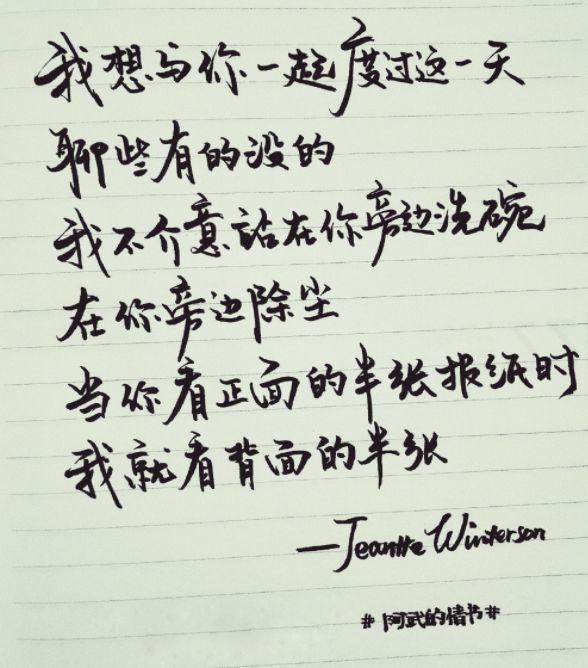 我想与你一起度过这一天
聊些有的没的
我不介意站在你旁边洗碗
在你旁边除尘
当你看正面的半张报纸时
我就看背面的半张
—Jeanette Winterson
#阿武的情书#